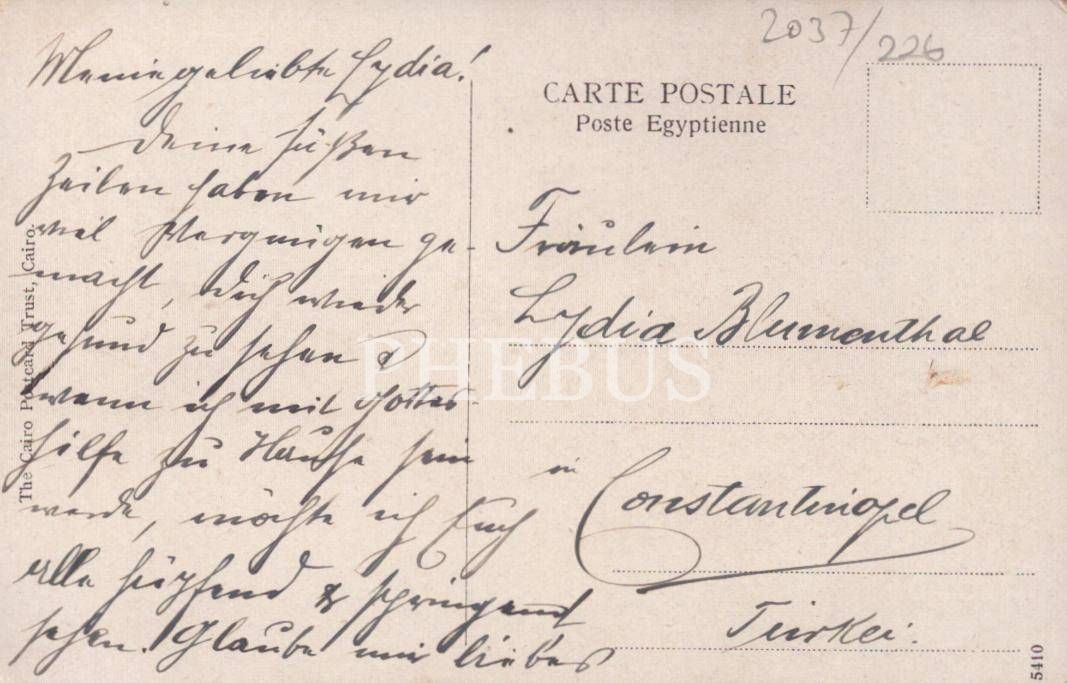 2037/226
Meine geliebte Lydia!
Deine süßen
Zeilen haben mir
viel Vergnügen ge-
macht, dich wieder
gesund zu sehen &
wenn ich mit Gottes
Hilfe zu Hause sein
werde, möchte ich Euch
alle hüpfend & springend
sehen. Glaube mir liebes
CARTE POSTALE
Poste Egyptienne
Fräulein
Lydia Blumenthal
in
Constantinopel
Türkei.
The Cairo Postcard Trust, Cairo.
5410
PHEBUS